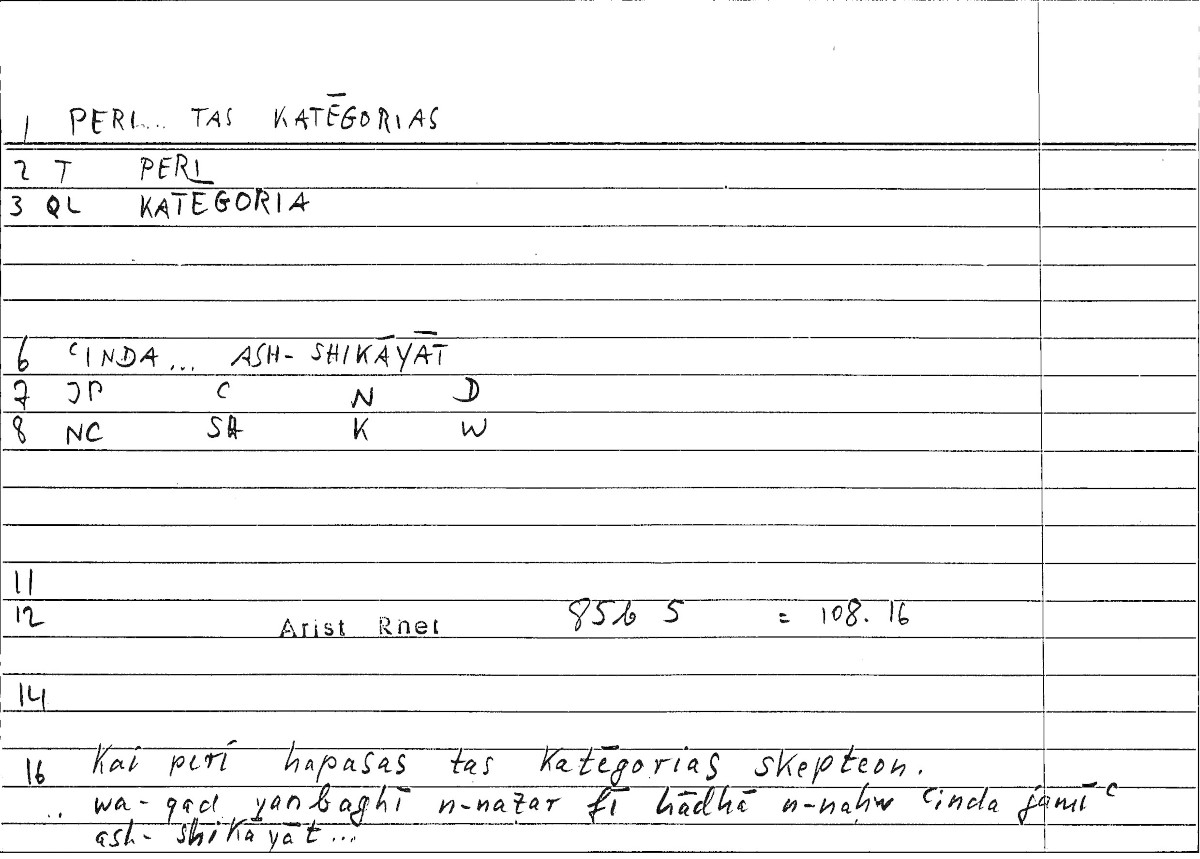 1 PERI... TAS KATĒGORIAS
2 T PERI
3 QL KATĒGORIA
6 ʿINDA... ASH-SHIKĀYĀT
7 JP C N D
8 NC SH K W
11
12 Arist Rhet 85b 5 = 108.16
14
16 Kai perì hapasas tas Katēgorias skepteon.
.. wa-qad yanbaghī n-naẓar fī hādhā n-naḥw ʿinda jamīʿ
ash-shikāyāt...